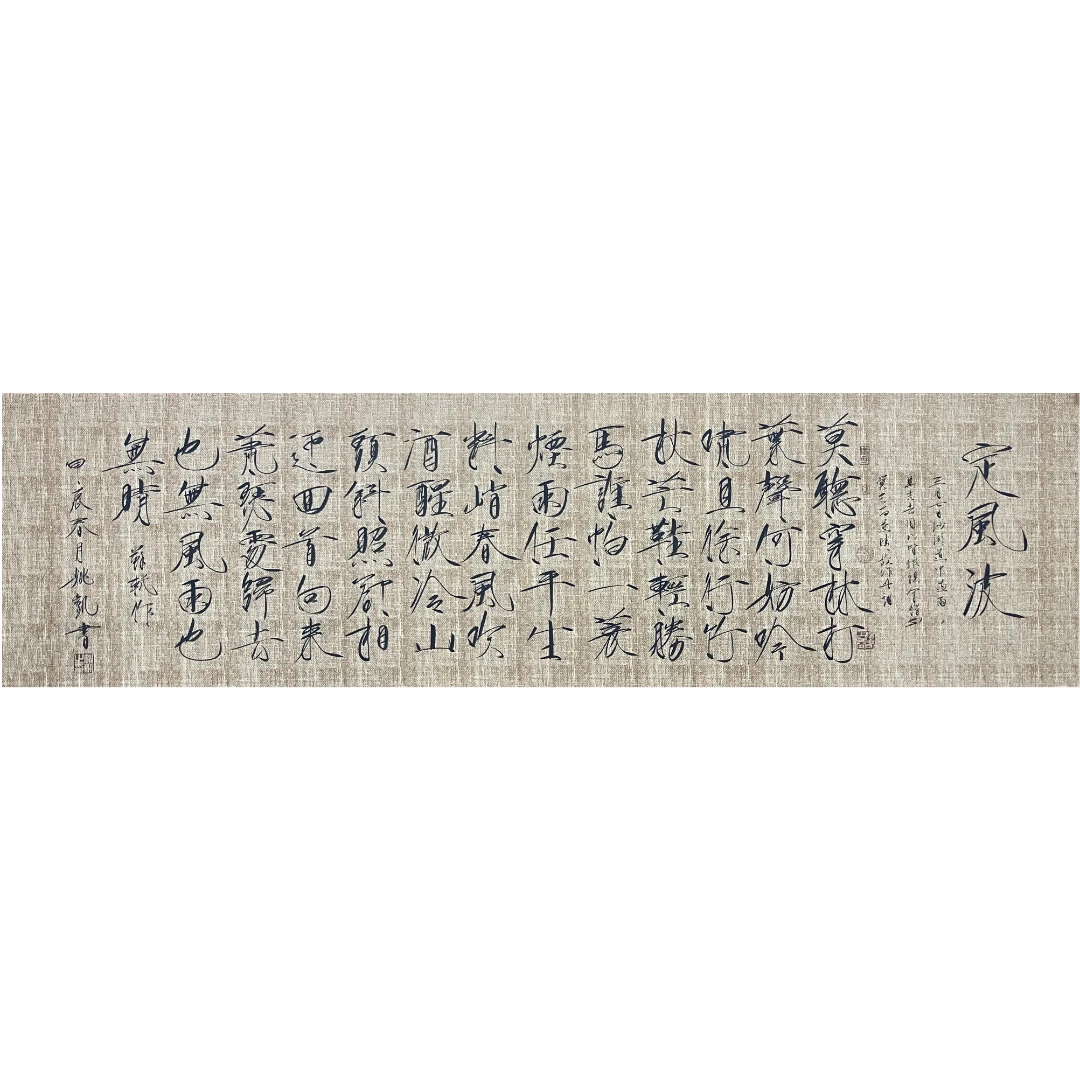 定風波
三月七日沙湖道中遇雨
具先去同行皆狼狽余獨不
覺已而遂晴故作此詞
莫聽穿林打
葉聲何妨吟
嘯且徐行竹
杖芒鞋輕勝
馬誰怕一蓑
煙雨任平生
料峭春風吹
酒醒微冷山
頭斜照卻相
迎回首向來
蕭瑟處歸去
也無風雨也
無晴 蘇軾作
甲辰春月姚凱書